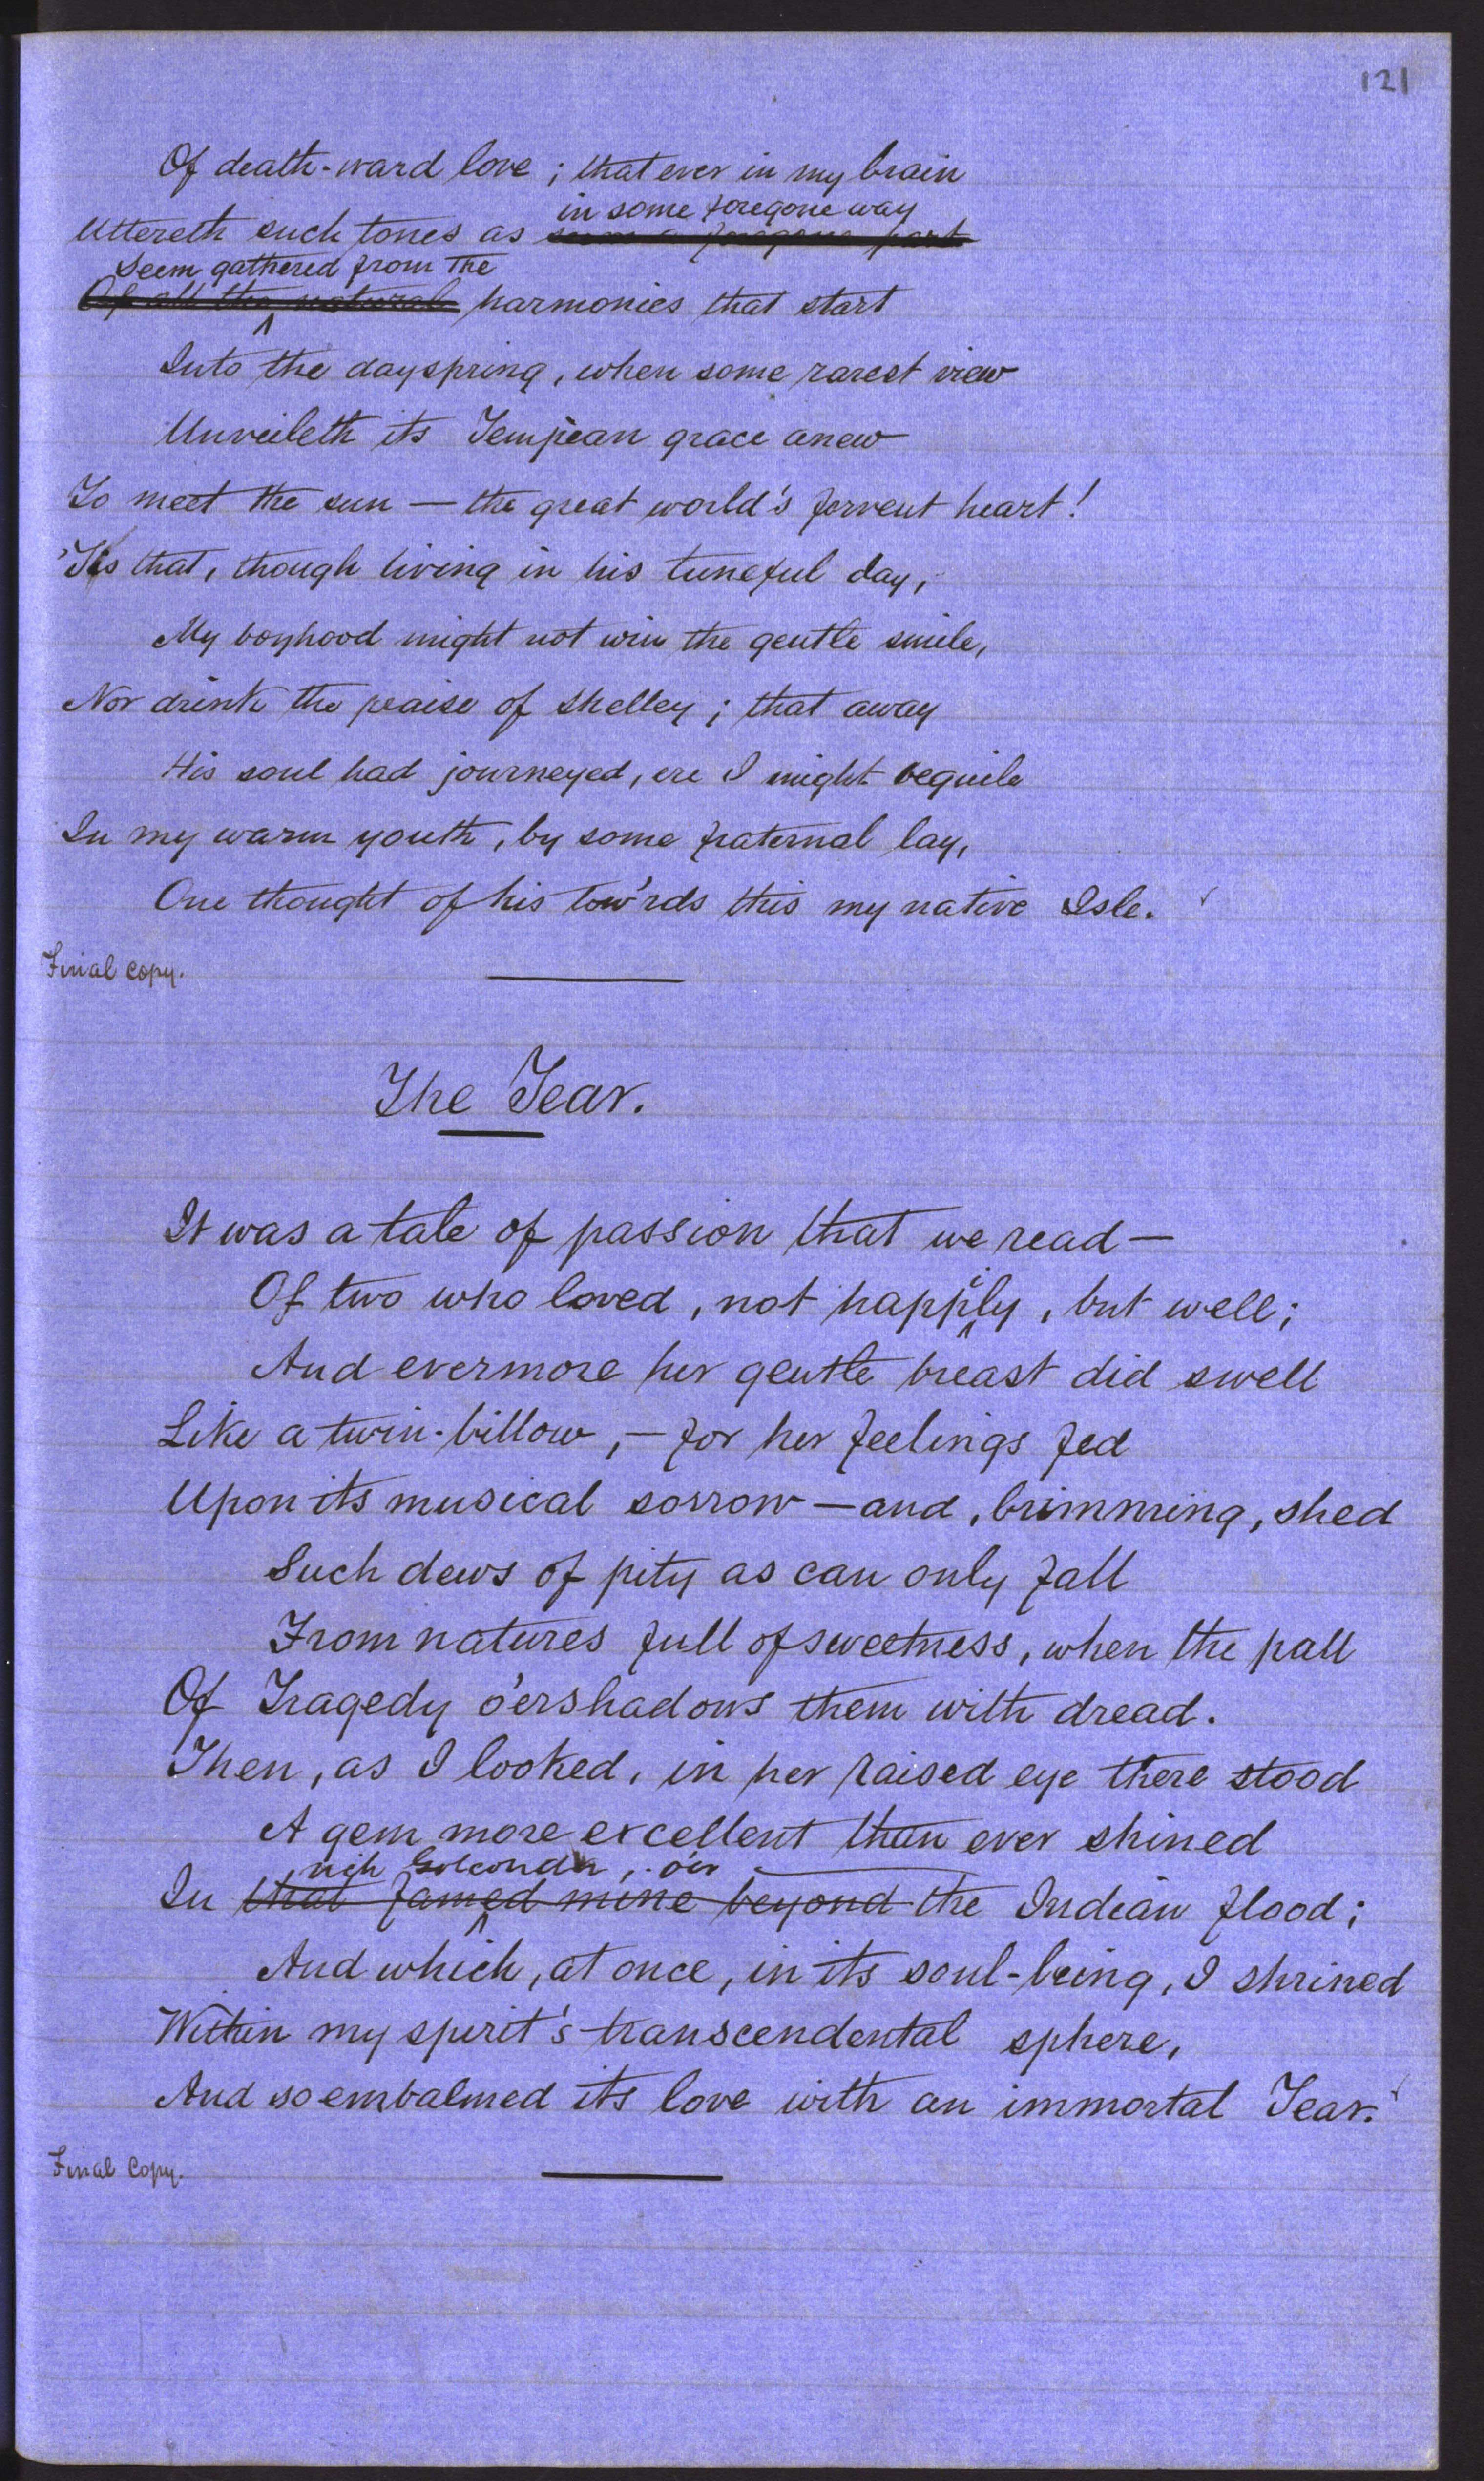 121
Of death-ward love ; that ever in my brain
in some foregone way
Uttereth such tones as seem a foregone part
Seem gathered from the
Of all the natural harmonies that start
Into the dayspring, when some rarest view
Unveileth its Tempèan grace anew
To meet the sun — the great world's fervent heart!
'Tis that, though living in his tuneful day,
My boyhood might not win the gentle smile,
Nor drink the praise of Shelley ; that away
His soul had journeyed, ere I might beguile
In my warm youth, by some fraternal lay,
One thought of his tow'rds this my native Isle.
Final copy.
The Tear.
It was a tale of passion that we read —
Of two who loved, not happily, but well;
And evermore her gentle breast did swell
Like a twin-billow, — for her feelings fed
Upon its musical sorrow — and, brimming, shed
Such dews of pity as can only fall
From natures full of sweetness, when the pall
Of Tragedy o'ershadows them with dread.
Then, as I looked, in her raised eye there stood
A gem more excellent than ever shined
rich Golconda, o'er
In that famed mine beyond the Indean flood;
And which, at once, in its soul-being, I shrined
Within my spirit's transcendental sphere,
And so embalmed its love with an immortal Tear.
Final Copy.